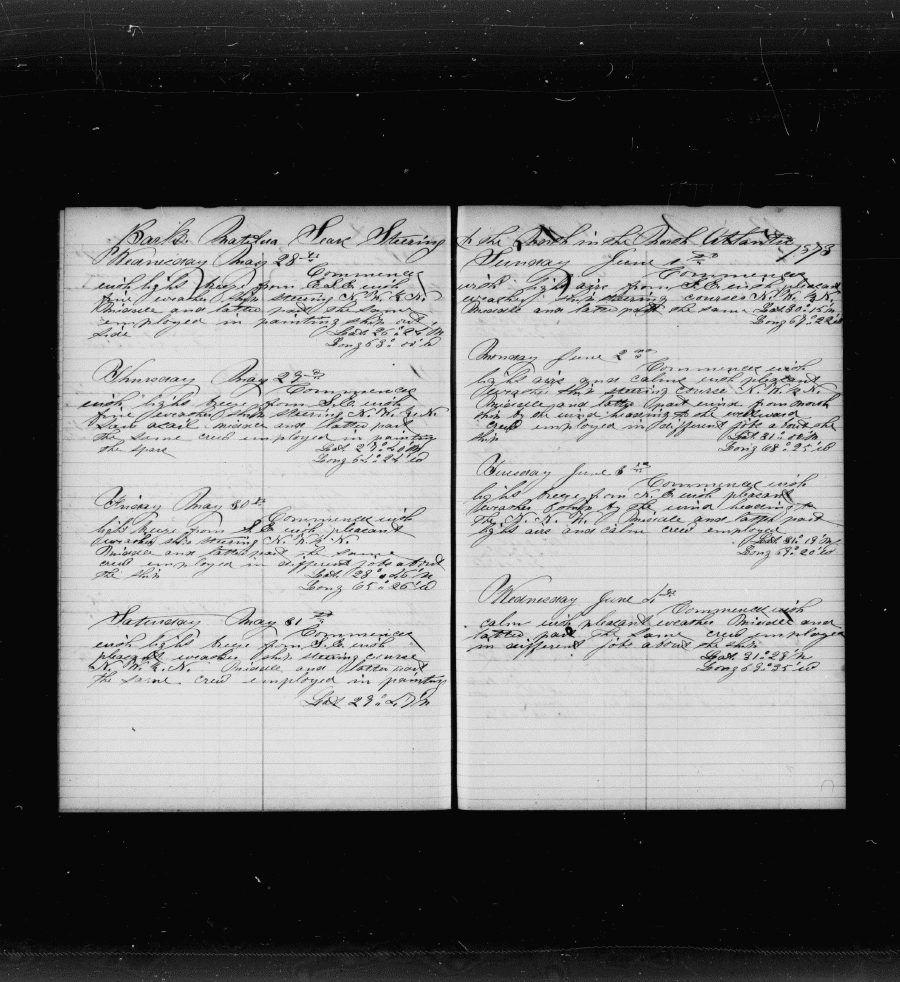 Bark Matilda Sears Steering
Wednesday May 28th
Commences
with light breeze from E.S.E. with
fine weather ship steering N. W. & N.
Middle and latter part the same
employed in painting ship out
side Lat 26° 24' N
Long 63° 00' W
Thursday May 29th
Commences
with light breeze from S.E. with
fine weather ship steering N. W. & N.
Seen a sail middle and latter part
the same crew employed in painting
the spars Lat. 27° 40' N
Long 64° 24' W
Friday May 30th
Commences with
light breeze from S.E. with pleasant
weather ship steering N. W. & N.
Middle and latter part the same
crew employed in different jobs about
the ship Lat. 28° 46' N
Long 65° 26' W
Saturday May 31st
Commences
with light breeze from S.E. with
pleasant weather ship steering course
N. W. & N. Middle and latter part
the same crew employed in painting
Lat 29° 47' N
to the North in the North Atlantic
1873
Sunday June 1st
Commences
with light airs from S.E. with pleasant
weather ship steering courses N. W. & N.
Middle and latter part the same Lat 30° 15' N
Long 67° 22' W
Monday June 2nd
Commences with
light airs and calms with pleasant
weather ship steering course N. W. & N.
Middle and latter part wind from North
ship by the wind heading to the westward
crew employed in different jobs about the
ship Lat 31° 00' N
Long 68° 25' W
Tuesday June 3rd
Commences with
light breeze from N. E. with pleasant
weather by the wind heading to
the N. W. Middle and latter part
light airs and calm crew employed
Lat 31° 19' N
Long 69° 20' W
Wednesday June 4th
Commences with
calm with pleasant weather Middle and
latter part the same crew employed
in different jobs about the ship
Lat. 31° 28' N
Long 69° 25' W